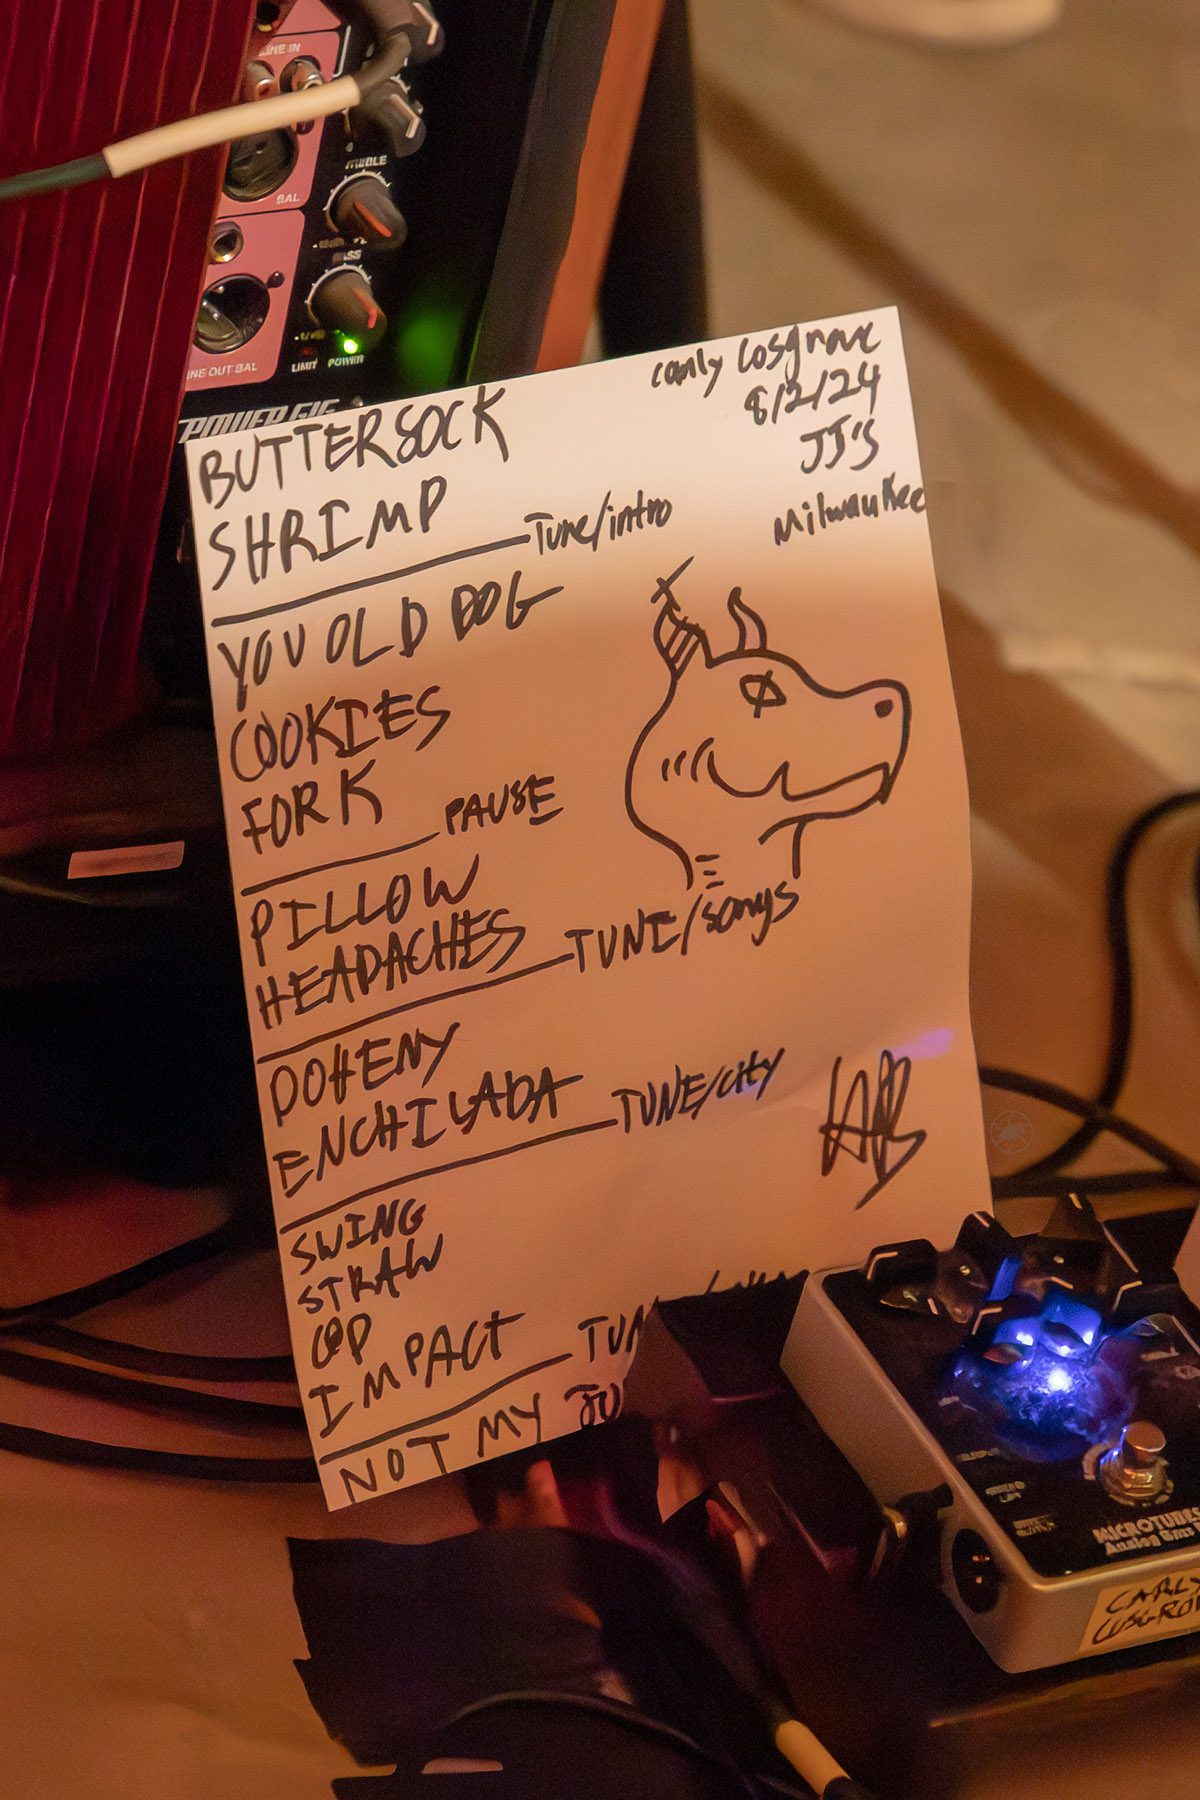 LINE IN
BAL
TREBLE
BASS
LINE OUT BAL
LIMIT POWER
Carly Cosgrove
8/2/24
JJ'S
Milwaukee
BUTTERSOCK
SHRIMP
Tune/intro
YOU OLD DOG
COOKIES
FORK
PAUSE
PILLOW
HEADACHES
TUNE/songs
DOHENY
ENCHILADA
TUNE/city
SWING
STRAW
COP
IMPACT
NOT MY
MICROTUBES
CARLY
COSGROV